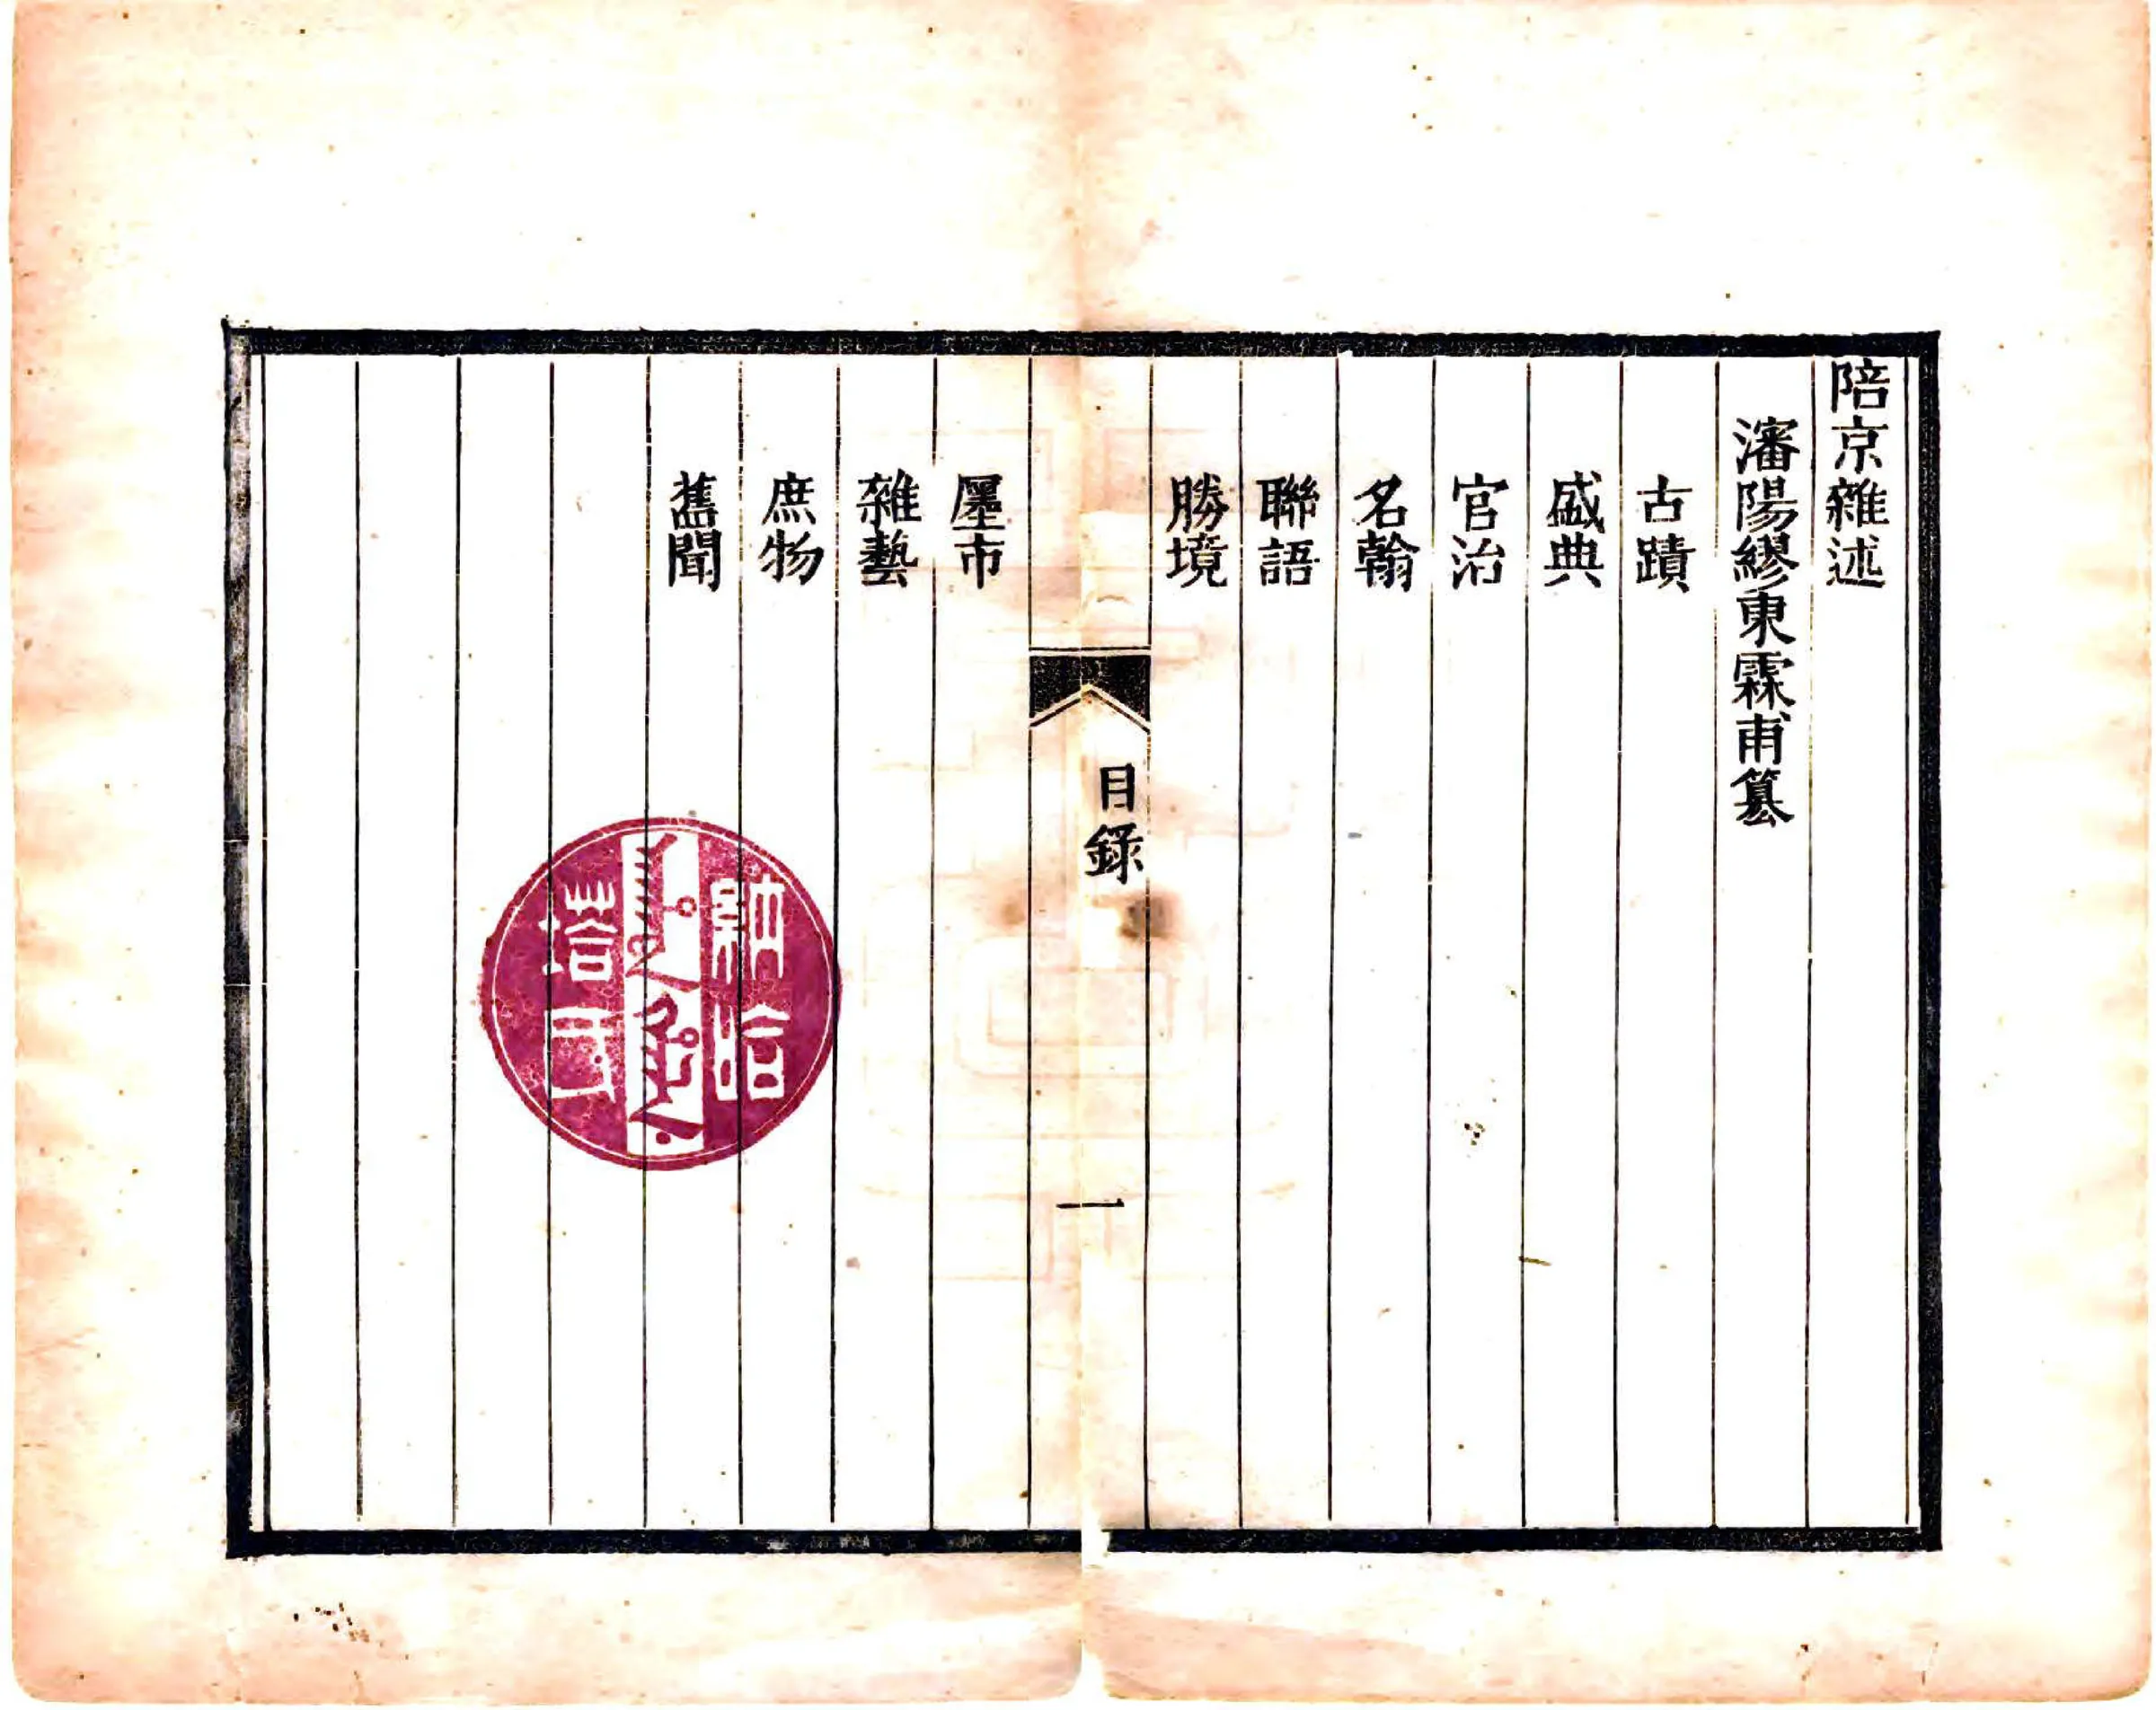 陪京雜述
瀋陽繆東霖甫纂
古蹟
盛典
官治
名翰
聯語
勝境
目錄
一
廛市
雜藝
庶物
舊聞
納哈
塔氏